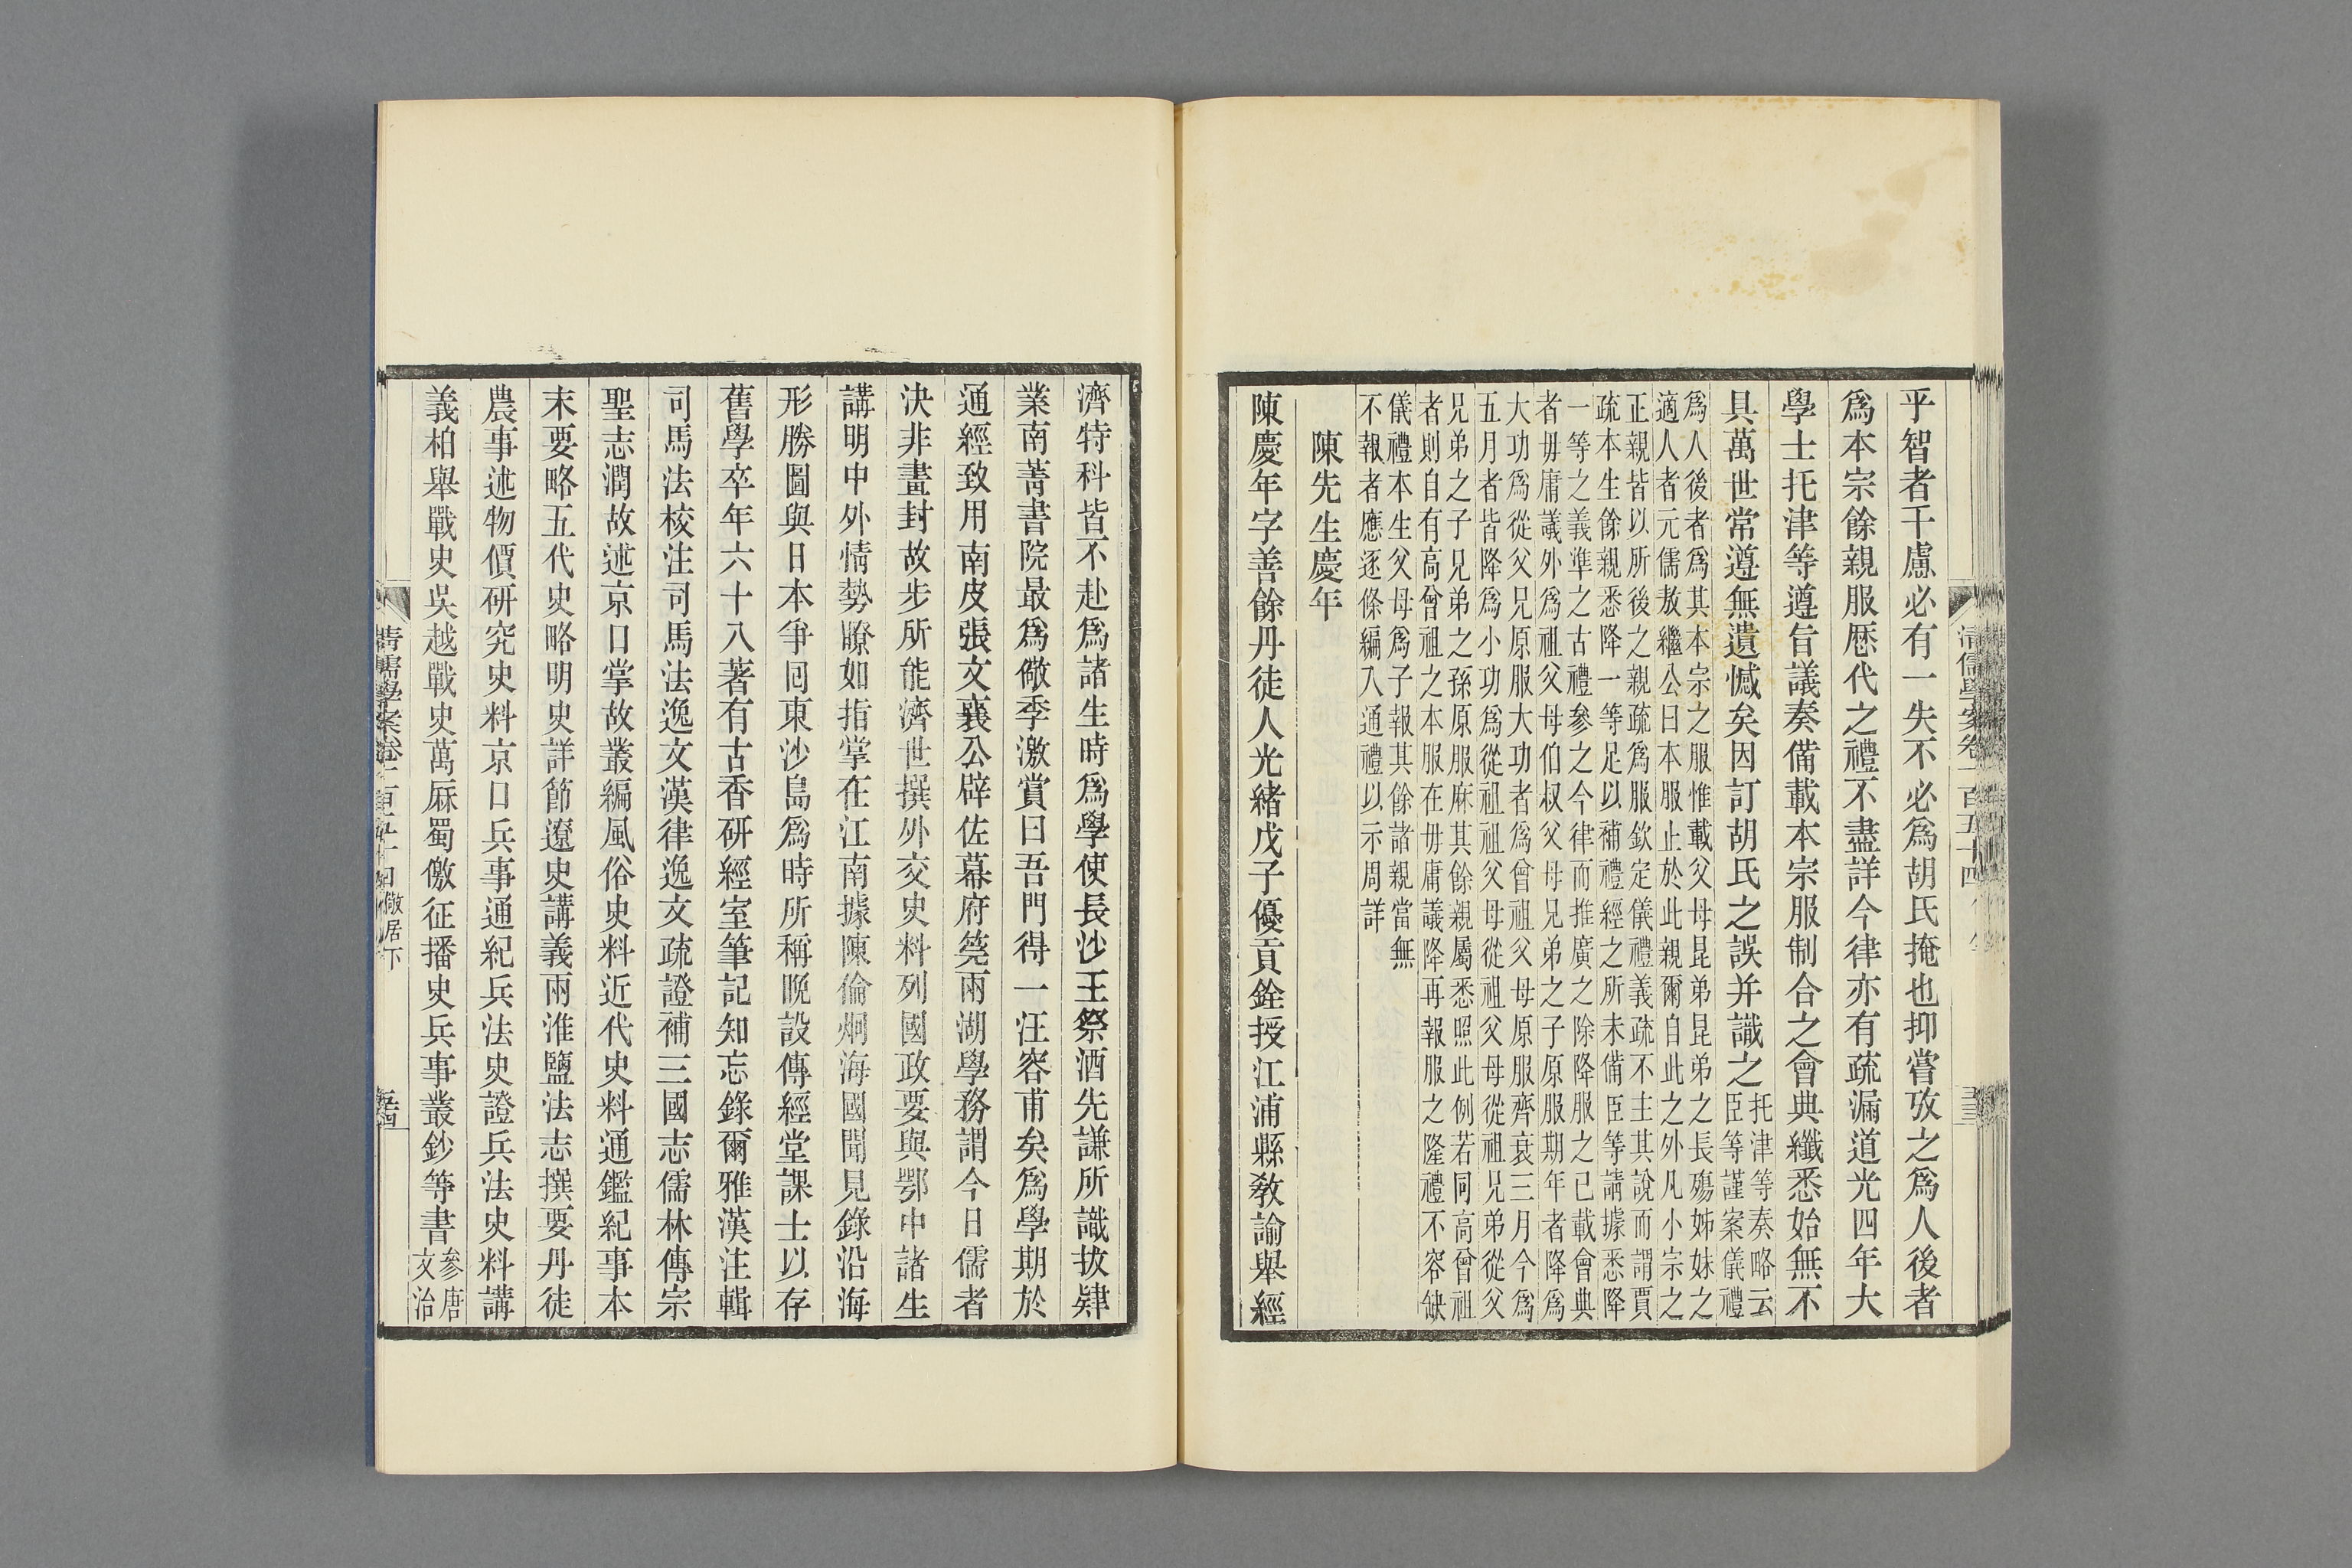 乎智者千慮必有一失不必爲胡氏掩也抑嘗攷之爲人後者
爲本宗餘親服歷代之禮不盡詳今律亦有疏漏道光四年大
學士托津等遵旨議奏備載本宗服制合之會典纖悉始無不
具萬世常遵無遺憾矣因訂胡氏之誤并識之
托津等奏略云
臣等謹案儀禮
爲人後者爲其本宗之服惟載父母昆弟昆弟之長殤姊妹之
適人者元儒敖繼公曰本服止於此親爾自此之外凡小宗之
正親皆以所後之親疏爲服欽定儀禮義疏不主其說而謂賈
疏本生餘親悉降一等足以補禮經之所未備臣等請據悉降
一等之義準之古禮參之今律而推廣之除降服之已載會典
者毋庸議外爲祖父母伯叔父母兄弟之子原服期年者降爲
大功爲從父兄原服大功者爲曾祖父母原服齊衰三月今爲
五月者皆降爲小功爲從祖祖父母從祖父母從祖兄弟從父
兄弟之子兄弟之孫原服麻其餘親屬悉照此例若同高曾祖
者則自有高曾祖之本服在毋庸議降再報服之隆禮不容缺
儀禮本生父母爲子報其餘諸親當無
不報者應逐條編入通禮以示周詳
陳先生慶年
陳慶年字善餘丹徒人光緒戊子優貢銓授江浦縣教諭舉經
清儒學案卷一百五十四
濟特科皆不赴爲諸生時爲學使長沙王祭酒先謙所識拔肄
業南菁書院最爲儆季激賞曰吾門得一汪容甫矣爲學期於
通經致用南皮張文襄公辟佐幕府筦兩湖學務謂今日儒者
決非畫封故步所能濟世撰外交史料列國政要與鄂中諸生
講明中外情勢瞭如指掌在江南據陳倫炯海國聞見錄沿海
形勝圖與日本爭回東沙島爲時所稱晚設傳經堂課士以存
舊學卒年六十八著有古香研經室筆記知忘錄爾雅漢注輯
司馬法校注司馬法逸文漢律逸文疏證補三國志儒林傳宗
聖志潤故述京口掌故叢編風俗史料近代史料通鑑紀事本
末要略五代史略明史詳節遼史講義兩淮鹽法志撰要丹徒
農事述物價研究史料京口兵事通紀兵法史證兵法史料講
義柏舉戰史吳越戰史萬厤蜀徼征播史兵事叢鈔等書
參唐
文治
清儒學案卷一百五十四
儆居下